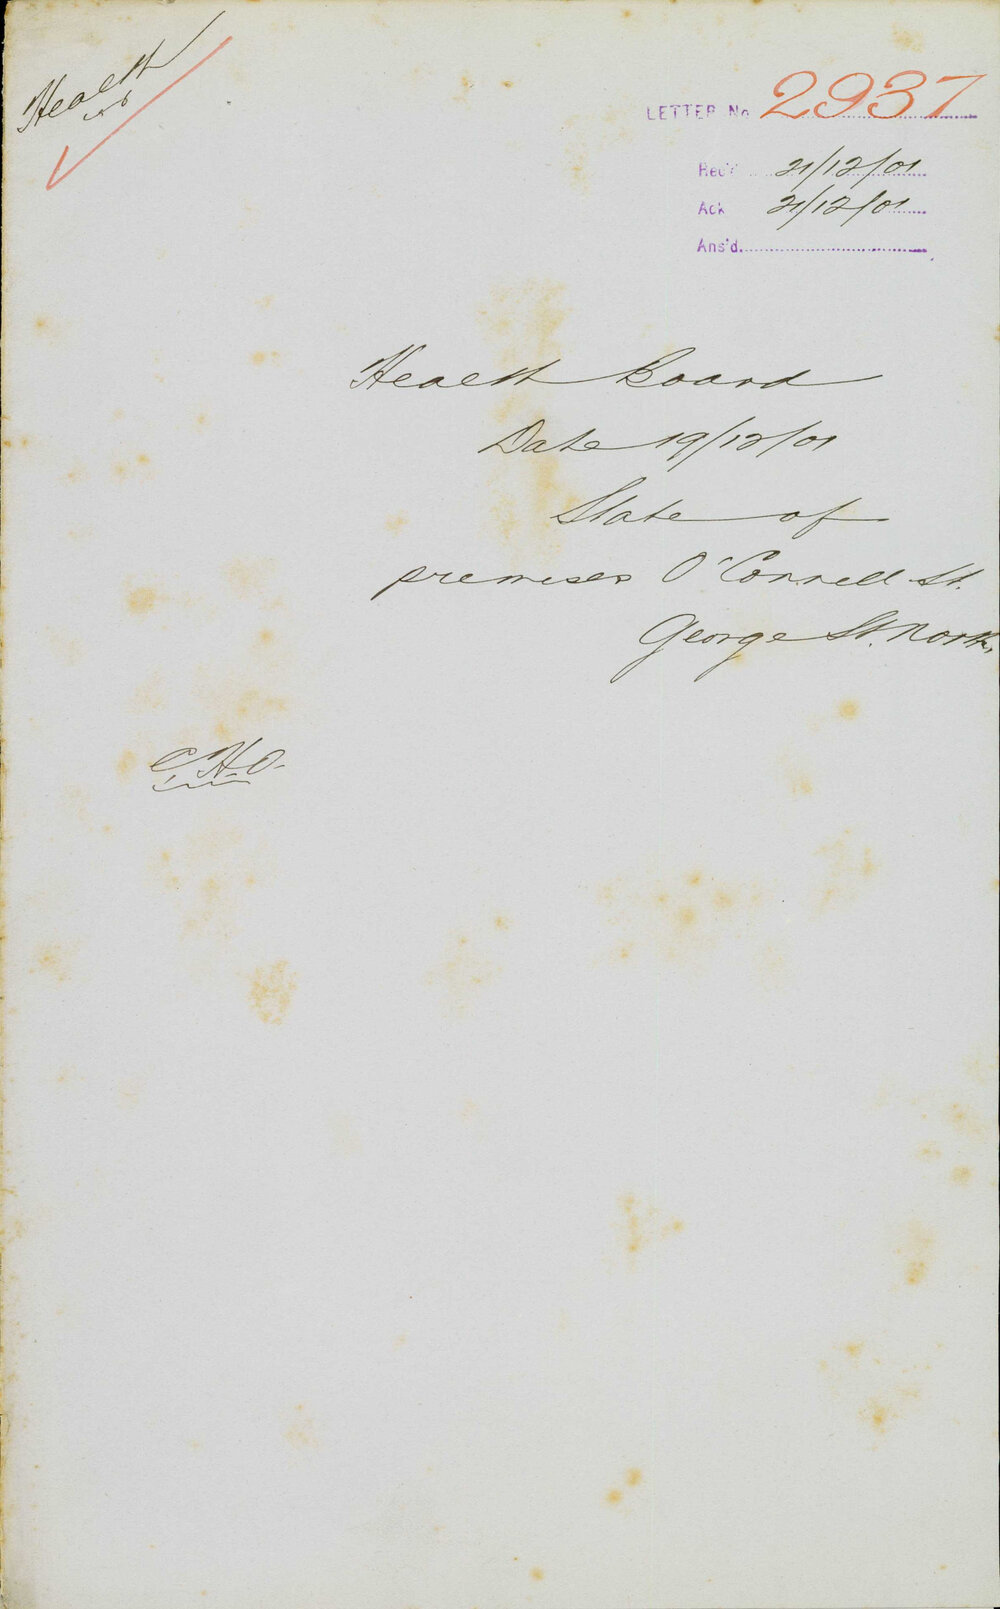 Health
LETTER No 2937
Rec'd 21/12/01
Ack 21/12/01
Ans'd.
Health Board
Date 19/12/01
State of
premises O'Connell St.
George St. North,
C.H.O.